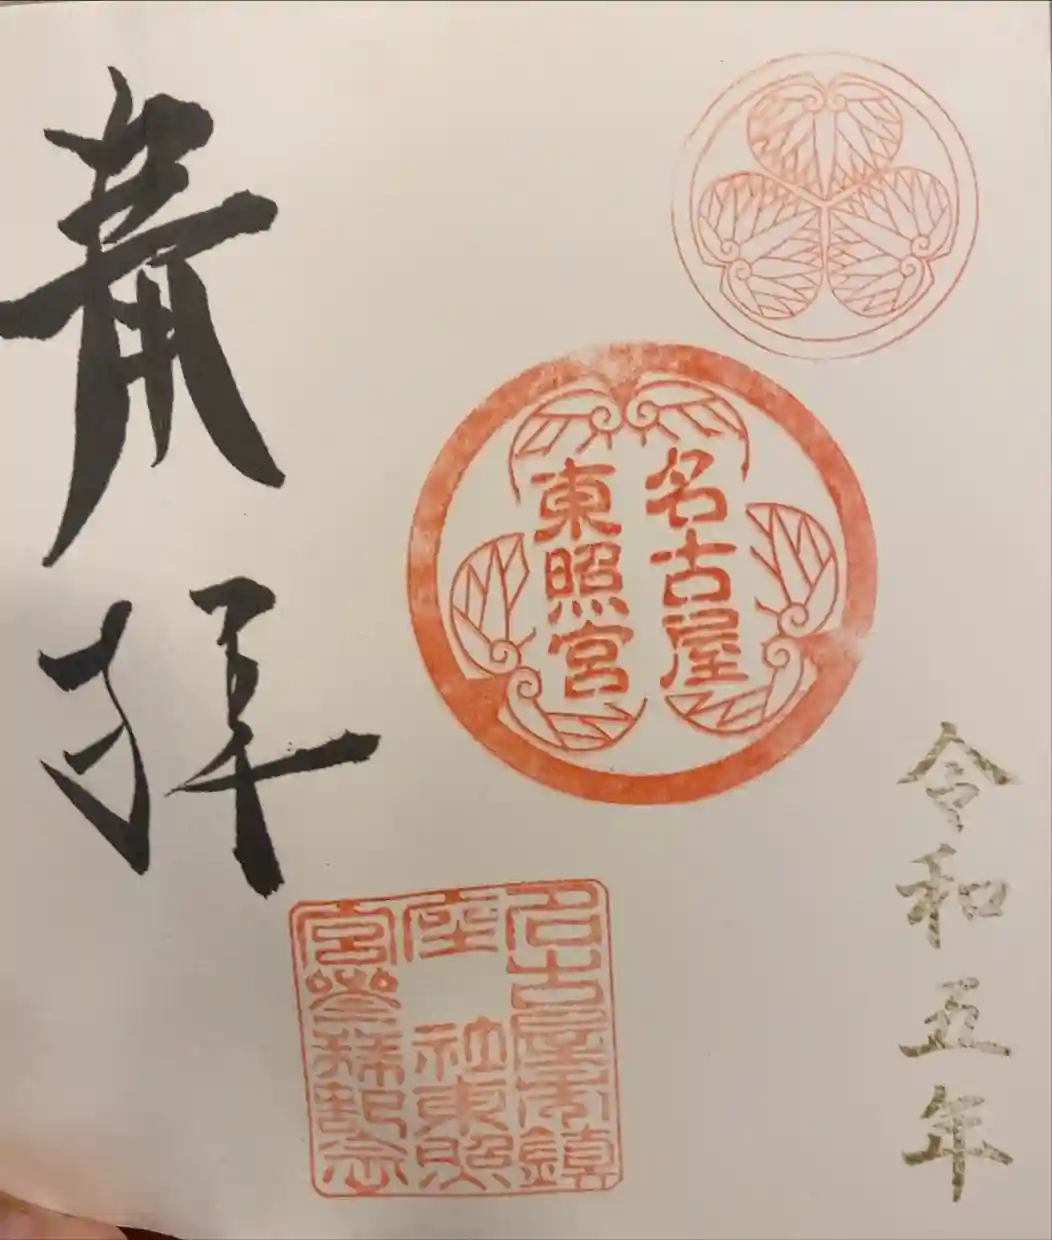 令和五年
名古屋
東照宮
名古屋市鎮
座 社東照
宮參拜記念
奉拝